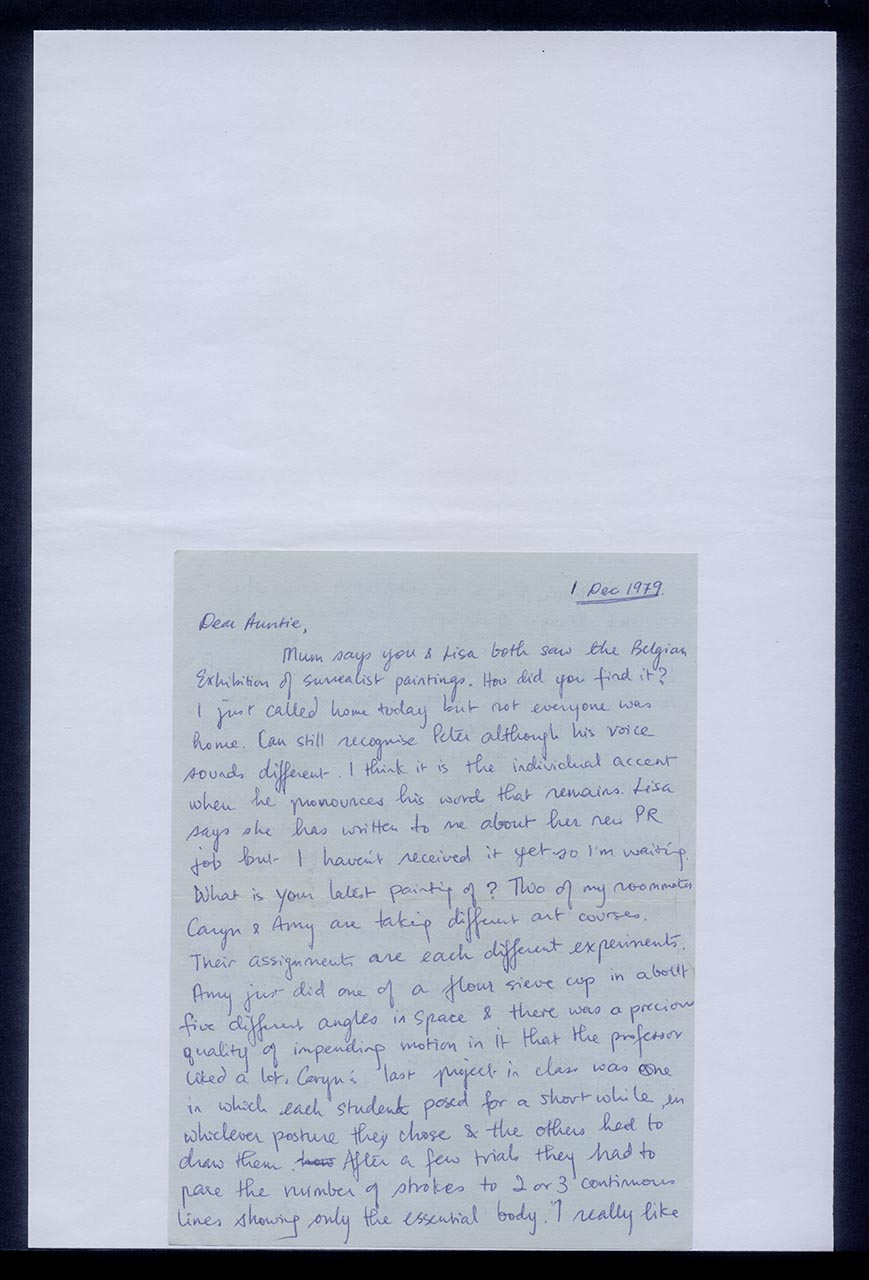 1 Dec 1979.
Dear Auntie,
Mum says you & Lisa both saw the Belgian
Exhibition of surrealist paintings. How did you find it?
I just called home today but not everyone was
home. Can still recognise Peter although his voice
sounds different. I think it is the individual accent
when he pronounces his words that remains. Lisa
says she has written to me about her new PR
job but I haven't received it yet so I'm waiting.
What is your latest painting of? Two of my roommates
Caryn & Amy are taking different art courses.
Their assignments are each different experiments.
Amy just did one of a flour sieve cup in about
five different angles in space & there was a precious
quality of impending motion in it that the professor
liked a lot. Caryn's last project in class was one
in which each student posed for a short while, in
whichever posture they chose & the others had to
draw them. After a few trials they had to
pare the number of strokes to 2 or 3 continuous
lines showing only the essential body. I really like